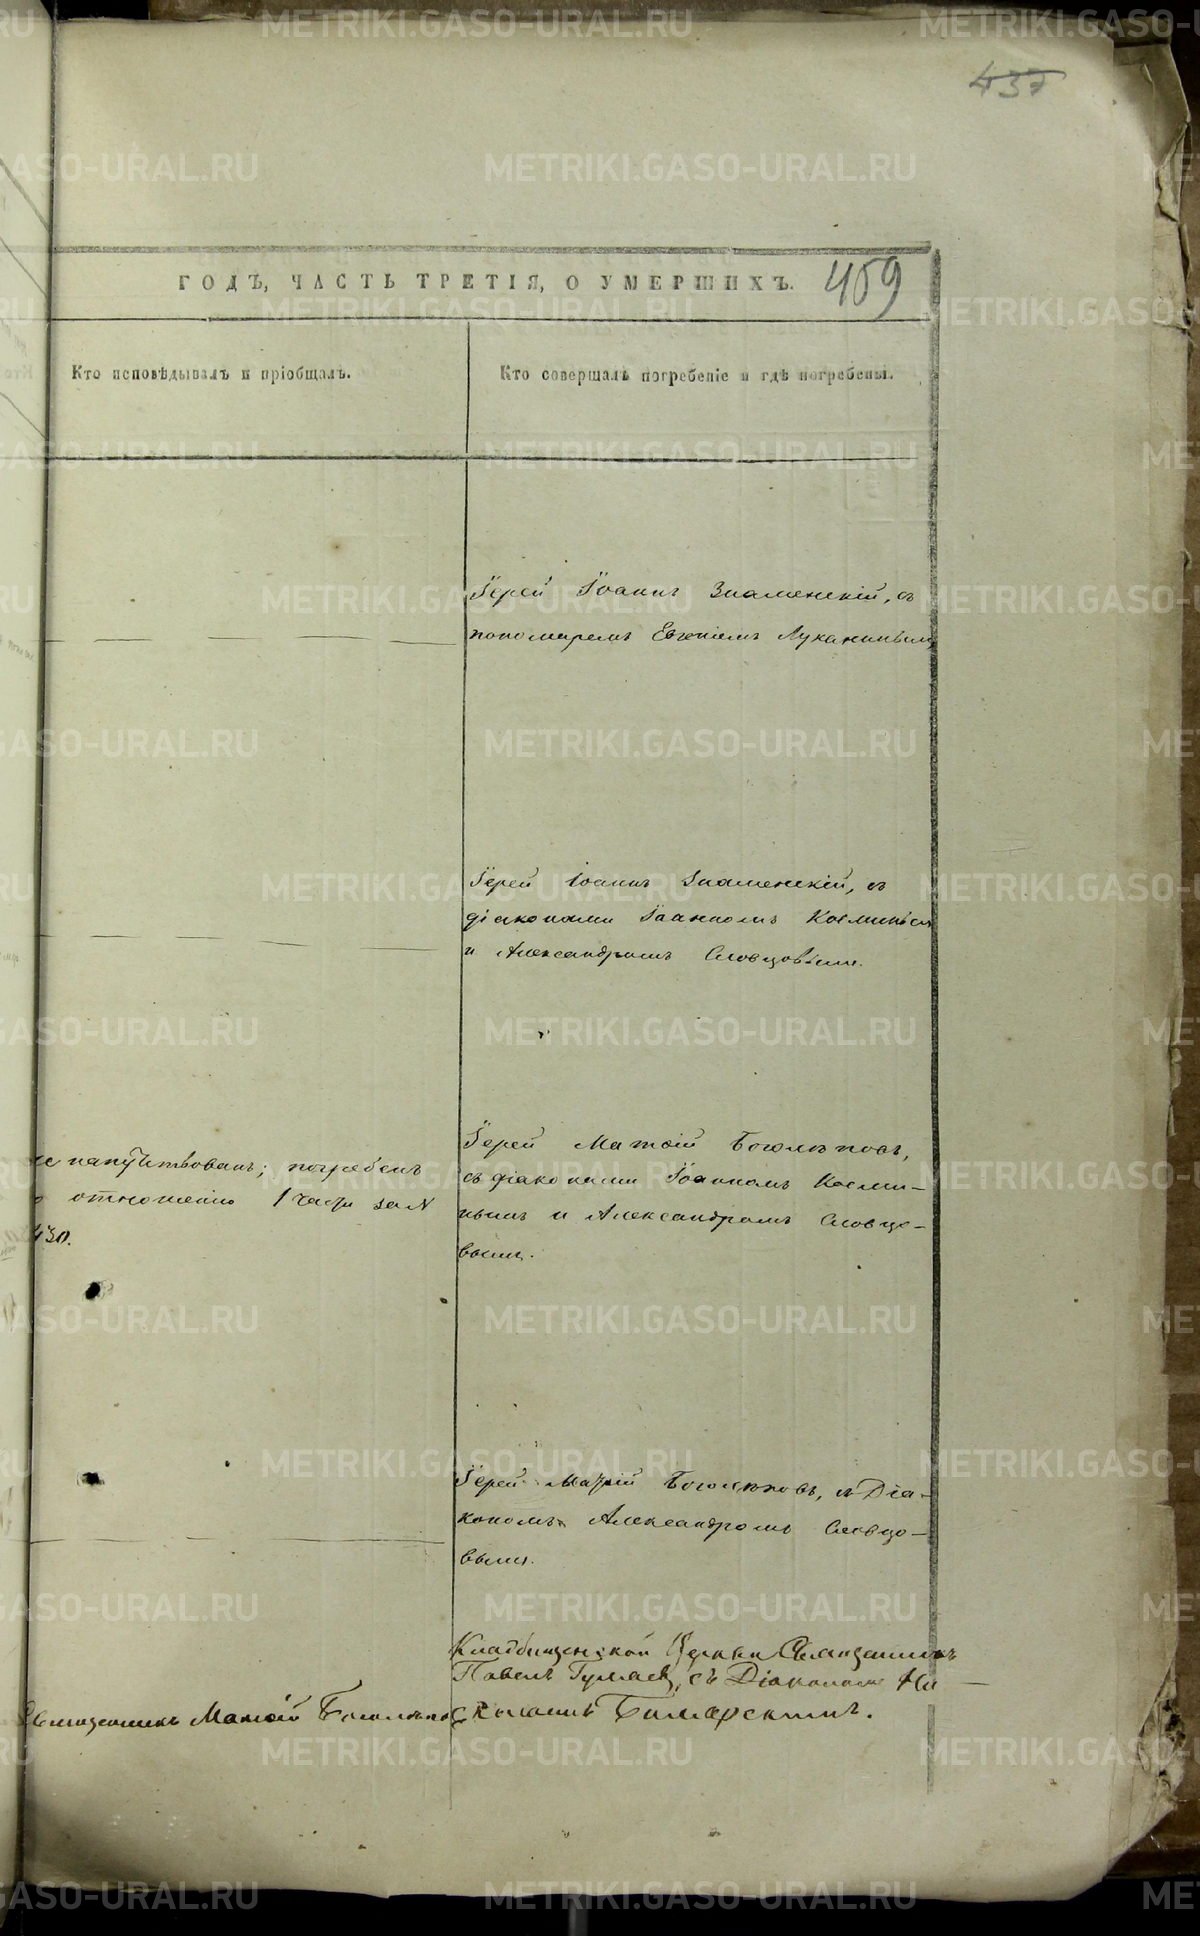 437
ГОДЪ, ЧАСТЬ ТРЕТІЯ, О УМЕРШИХЪ. 459
Кто исповѣдывалъ и пріобщалъ.
Кто совершалъ погребеніе и гдѣ погребены.
Іерей Іоаннъ Знаменскій, съ
пономаремъ Евгеніемъ Луканинымъ
Іерей Іоаннъ Знаменскій, съ
діаконами Іоанномъ Косминымъ
и Александромъ Словцовымъ.
не напутствованъ; погребенъ
отношенію 1 части за N
430.
Іерей Матѳій Боголѣповъ,
съ діаконами Іоанномъ Косми-
нымъ и Александромъ Словцо-
вымъ.
Іерей Матѳій Боголѣповъ, съ Діа-
кономъ Александромъ Словцо-
вымъ.
Священникъ Матѳій Боголѣповъ
Кладбищенской Церкви Священникъ
Павелъ съ Діакономъ Ни-